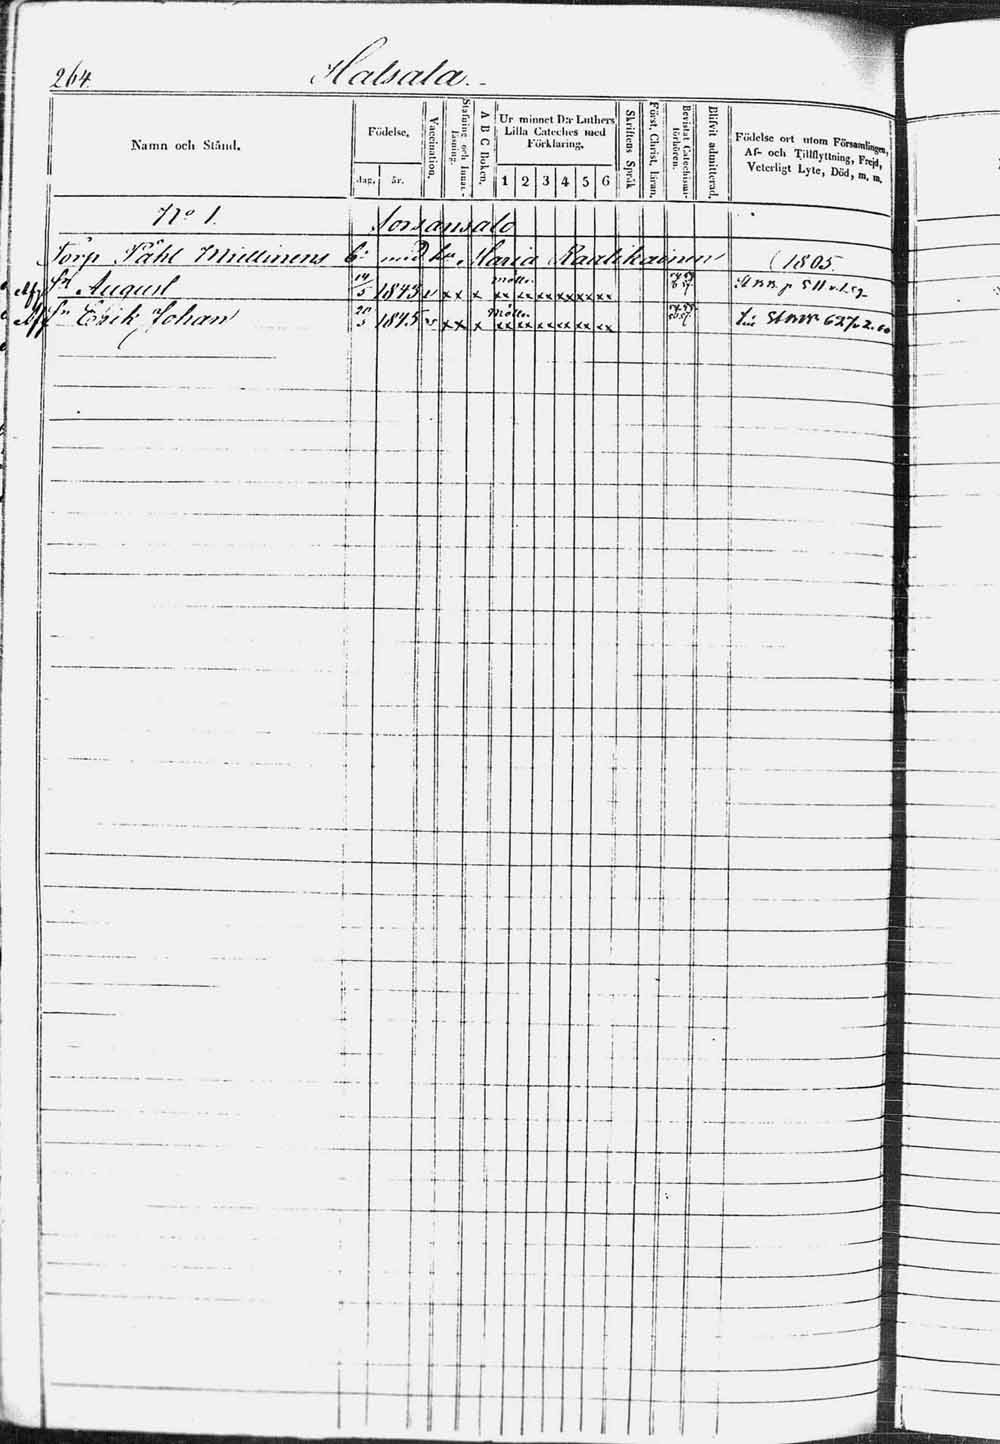 264.
Halsala.
Namn och Stånd.
Födelse,
dag.
år.
Vaccination.
Stafning och Innan-
läsning.
A B C Boken.
Ur minnet D:r Luthers
Lilla Cateches med
Förklaring.
1 2 3 4 5 6
Skriftens Språk
Först. Christ. läran.
Bevistat Catechismi-
förhören.
Blifvit admitterad.
Födelse ort utom Församlingen,
Af- och Tillflyttning, Frejd,
Veterligt Lyte, Död, m. m.
No 1. Sorsansalo
Torp Påhl Miettinens b: med hu. Maria Raatikainen (1805.
Sn August 14/5 1843 v x x x xx xx xx xx xx xx
Aff Sn Erik Johan 20/5 1845 x x x xx xx xx xx xx xx